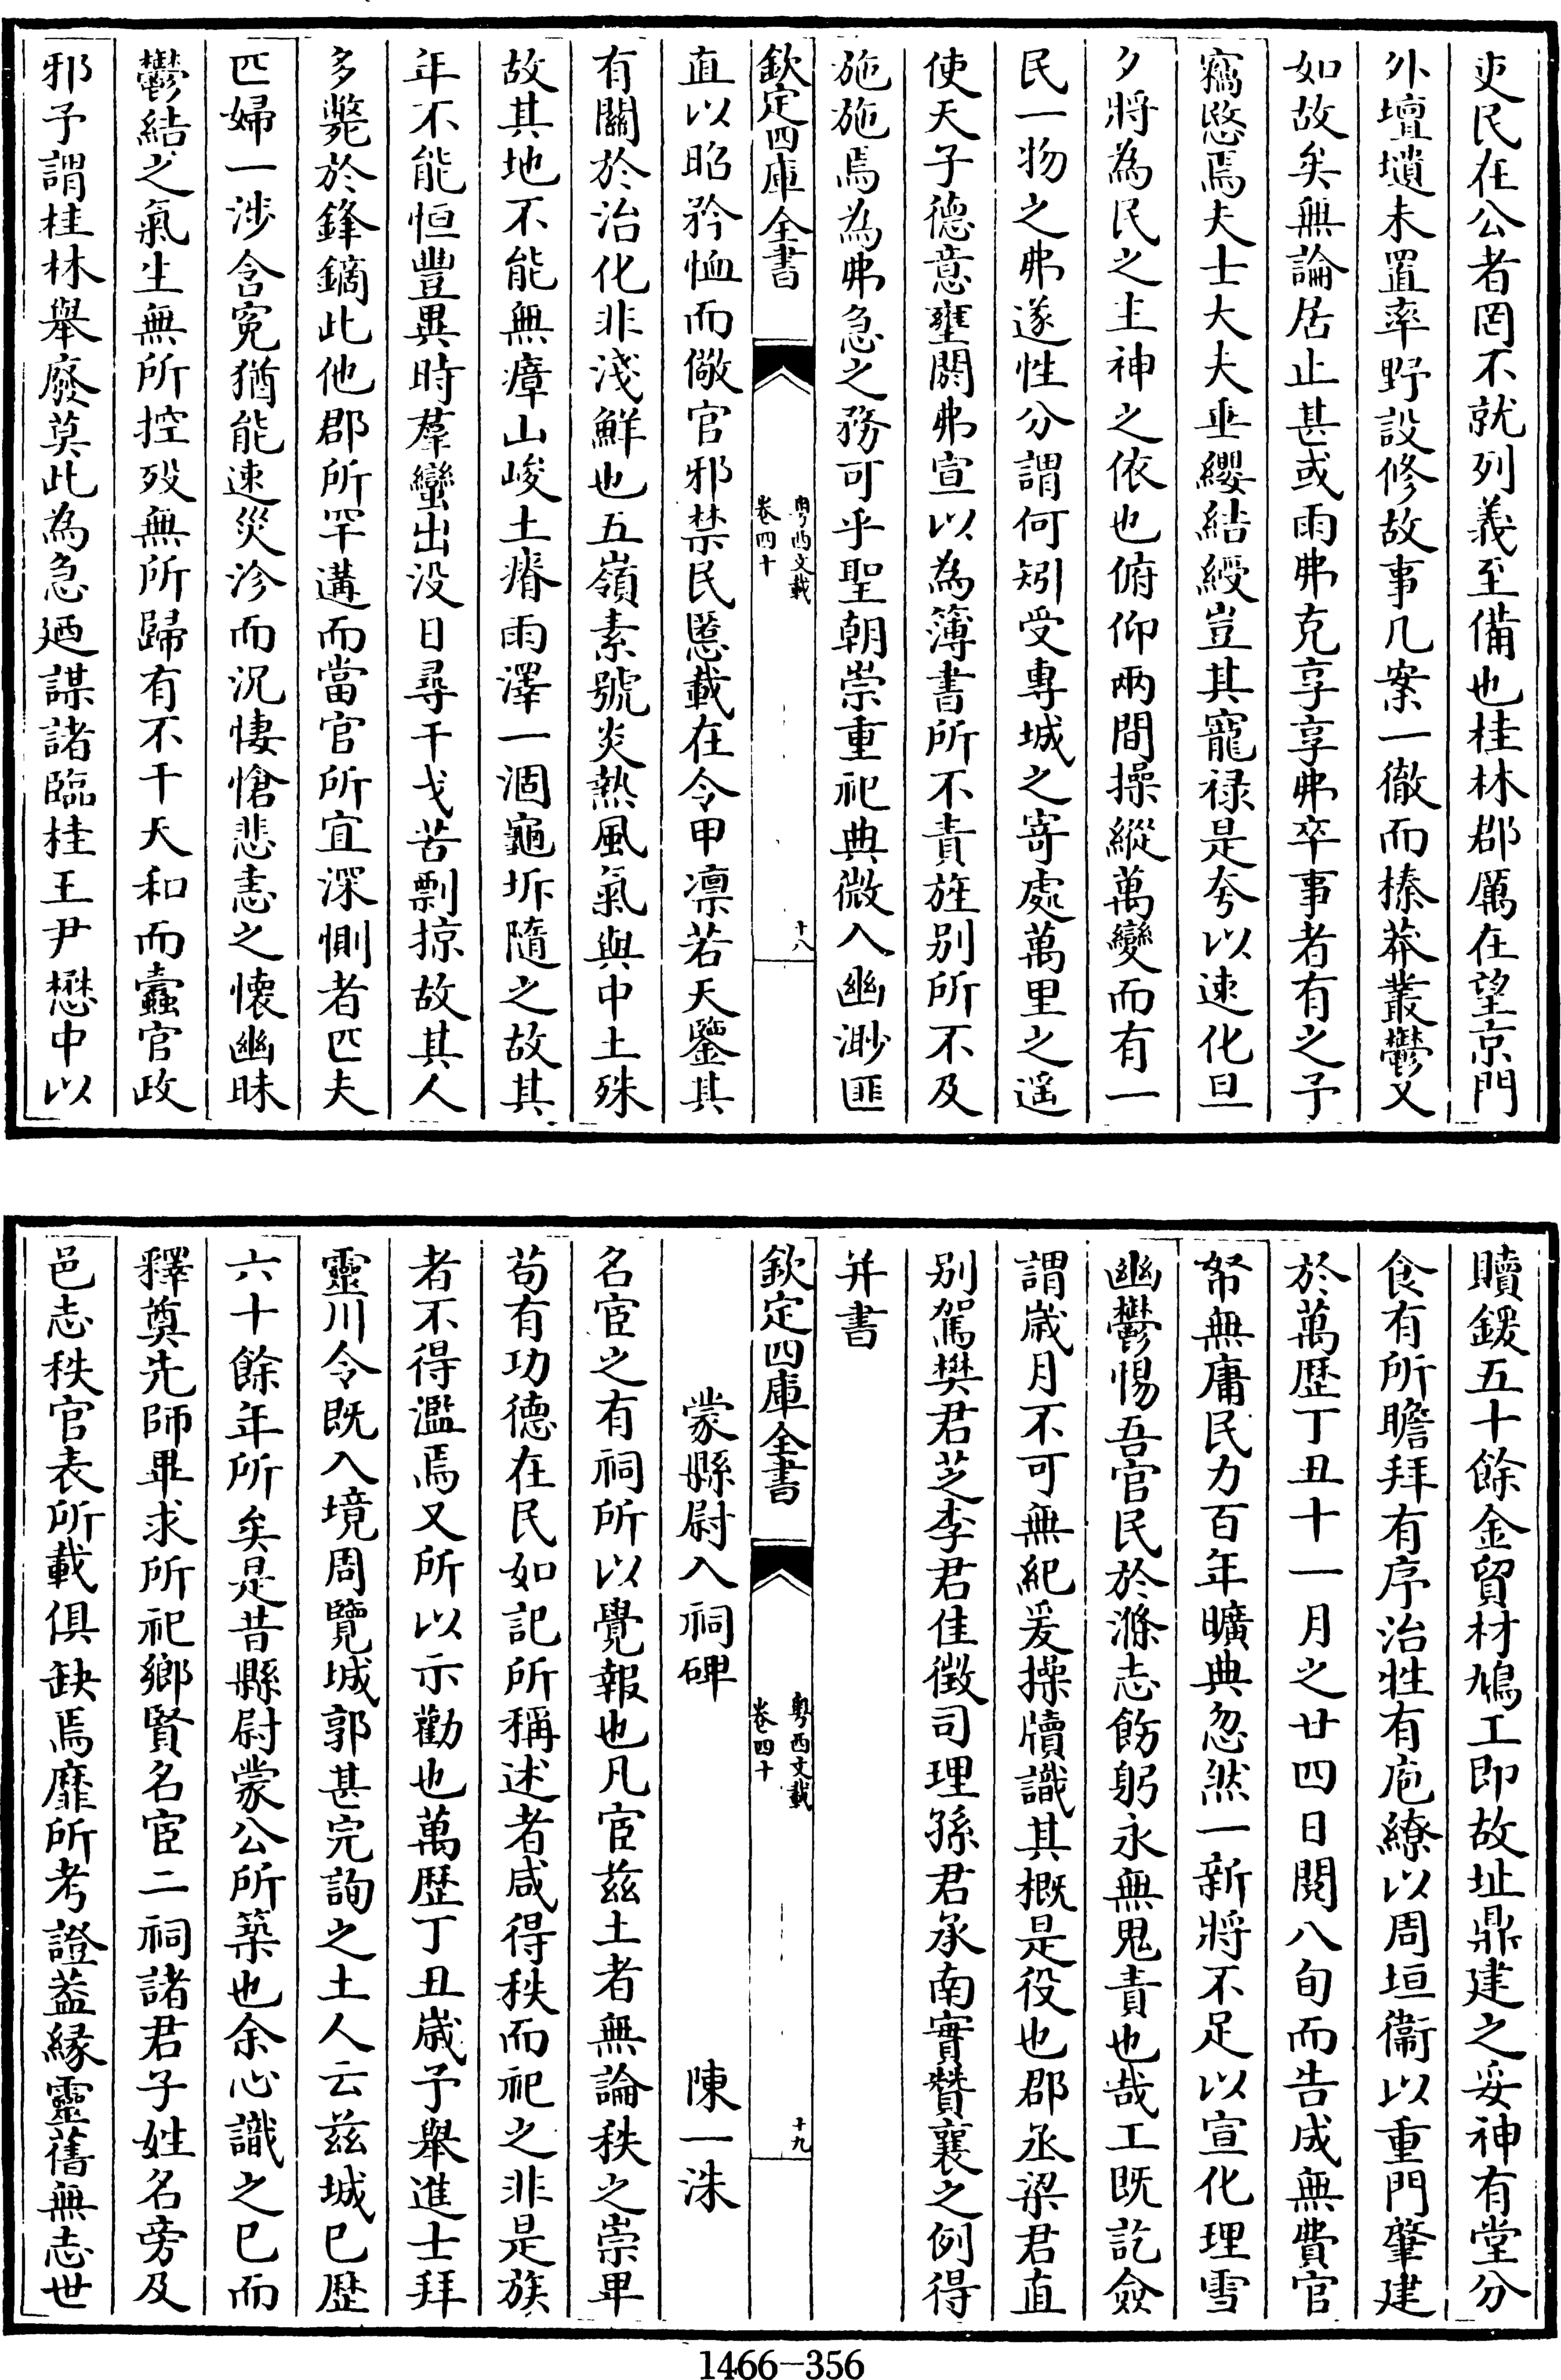 吏民在公者罔不就列義至備也桂林郡厲在望京門
外壇壝未置率野設修故事几案一徹而榛莽叢鬱又
如故矣無論居止甚或雨弗克享享弗卒事者有之予
竊愍焉夫士大夫垂纓結綬豈其寵禄是夸以速化旦
夕將為民之主神之依也俯仰兩間操縱萬變而有一
民一物之弗遂性分謂何矧受專城之寄處萬里之遥
使天子德意壅閼弗宣以為簿書所不責旌别所不及
施施焉為弗急之務可乎聖朝崇重祀典微入幽渺匪
欽定四庫全書
粤西文載
卷四十
十八
直以昭矜恤而儆官邪禁民慝載在令甲凛若天鑒其
有關於治化非淺鮮也五嶺素號炎熱風氣與中土殊
故其地不能無瘴山峻土瘠雨澤一涸龜坼隨之故其
年不能恒豐異時羣蠻出没日尋干戈苦剽掠故其人
多斃於鋒鏑此他郡所罕遘而當官所宜深惻者匹夫
匹婦一涉含寃猶能速災沴而況悽愴悲恚之懷幽昧
鬱結之氣生無所控殁無所歸有不干天和而蠹官政
邪予謂桂林舉廢莫此為急廼謀諸臨桂王尹懋中以
贖鍰五十餘金貿材鳩工即故址鼎建之妥神有堂分
食有所瞻拜有序治牲有庖繚以周垣衞以重門肇建
於萬歴丁丑十一月之廿四日閲八旬而告成無費官
帑無庸民力百年曠典忽然一新將不足以宣化理雪
幽鬱惕吾官民於滌志飭躬永無鬼責也哉工既訖僉
謂嵗月不可無紀爰操牘識其概是役也郡丞梁君直
别駕樊君芝李君佳徴司理孫君承南實贊襄之例得
并書
欽定四庫全書
粤西文載
卷四十
十九
蒙縣尉入祠碑 陳一洙
名宦之有祠所以覺報也凡宦兹土者無論秩之崇卑
苟有功德在民如記所稱述者咸得秩而祀之非是族
者不得濫焉又所以示勸也萬歴丁丑嵗予舉進士拜
靈川令既入境周覽城郭甚完詢之土人云兹城已歴
六十餘年所矣是昔縣尉蒙公所築也余心識之已而
釋奠先師畢求所祀鄉賢名宦二祠諸君子姓名旁及
邑志秩官表所載俱缺焉靡所考證葢緣靈舊無志世
1466-356